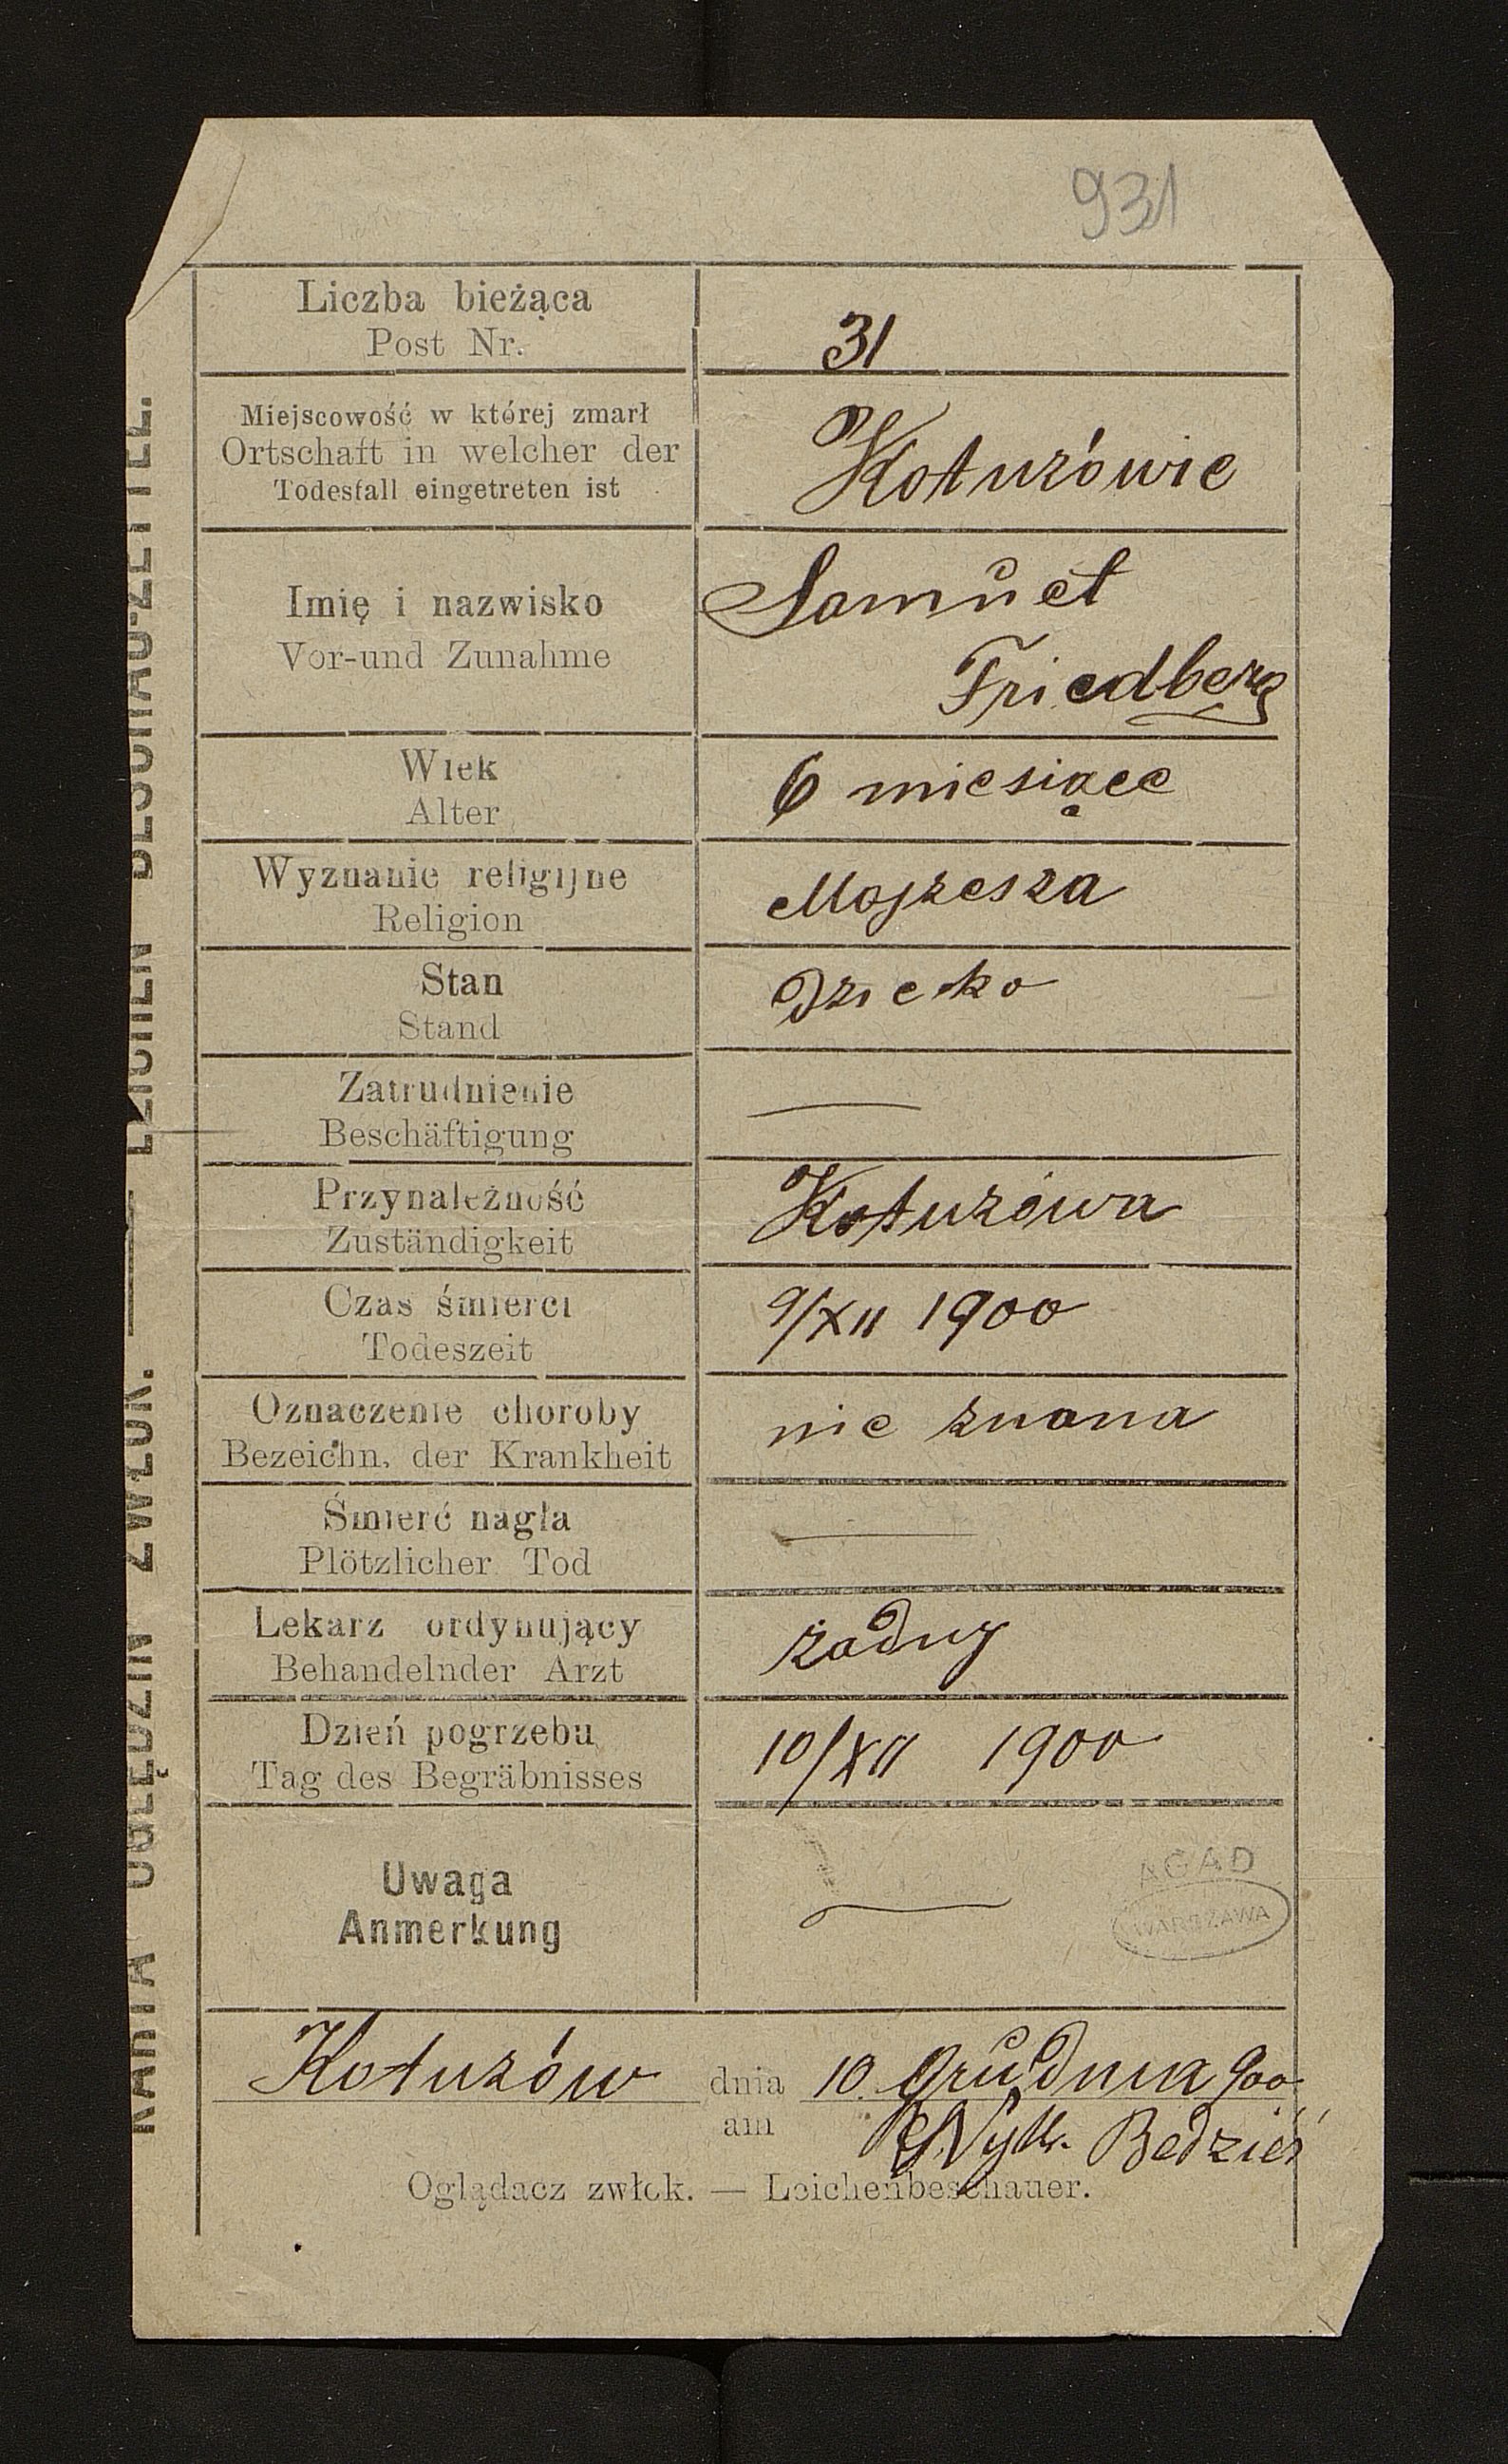 931
Liczba bieżąca
Post Nr.
31
Miejscowość w której zmarł
Ortschaft in welcher der
Todesfall eingetreten ist
Kotuzówie
Imię i nazwisko
Vor-und Zunahme
Samuel
Friedberg
Wiek
Alter
6 miesiące
Wyznanie religijne
Religion
Mojzesza
Stan
Stand
Dziecko
Zatrudnienie
Beschäftigung
Przynależność
Zuständigkeit
Kotuzówa
Czas śmierci
Todeszeit
9/XII 1900
Oznaczenie choroby
Bezeichn. der Krankheit
nie znana
Śmierć nagła
Plötzlicher Tod
Lekarz ordynujący
Behandelnder Arzt
żadny
Dzień pogrzebu
Tag des Begräbnisses
10/XII 1900
Uwaga
Anmerkung
AGAD
WARSZAWA
Kotuzów dnia 10 Grudnia 900
am Bedzieś
Oglądacz zwłok. — Leichenbeschauer.
KARTA OGLĘDZIN ZWŁOK. — LEICHEN BESCHAU-ZETTEL.